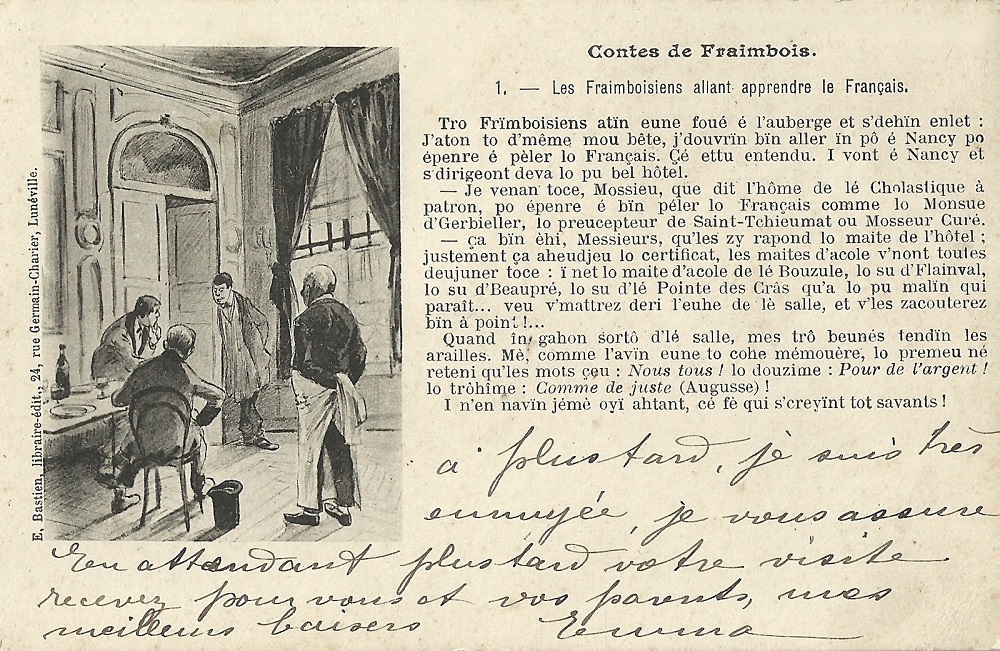 Contes de Fraimbois.
1. — Les Fraimboisiens allant apprendre le Français.
Tro Frïmboisiens atïn eune foué é l'auberge et s'dehïn enlet :
J'aton to d'même mou bête, j'douvrïn bïn aller ïn pô é Nancy po
épenre é pèler lo Français. Çé ettu entendu. I vont é Nancy et
s'dirigeont deva lo pu bel hôtel.
— Je venan toce, Mossieu, que dit l'hôme de lé Cholastique à
patron, po épenre é bïn péler lo Français comme lo Monsue
d'Gerbieller, lo preucepteur de Saint-Tchieumat ou Mosseur Curé.
— ça bïn èhi, Messieurs, qu'les zy rapond lo maite de l'hôtel ;
justement ça aheudjeu lo certificat, les maites d'acole v'nont toutes
deujuner toce : ï net lo maite d'acole de lé Bouzule, lo su d'Flainval,
lo su d'Beaupré, lo su d'lé Pointe des Crâs qu'a lo pu malïn qui
paraît... veu v'mattrez deri l'euhe de lè salle, et v'les zacouterez
bïn à point !...
Quand ïn gahon sortô d'lé salle, mes trô beunés tendïn les
arailles. Mè, comme l'avïn eune to cohe mémouère, lo premeu né
reteni qu'les mots çeu : Nous tous ! lo douzime : Pour de l'argent !
lo trôhîme : Comme de juste (Augusse) !
I n'en navïn jémè oyï ahtant, cé fè qui s'creyïnt tot savants !
E. Bastien, libraire-édit., 24, rue Germain-Charier, Lunéville.
a plus tard, je suis très
ennuyée, je vous assure
En attendant plus tard votre visite
recevez pour vous et vos parents, mes
meilleurs baisers Emma